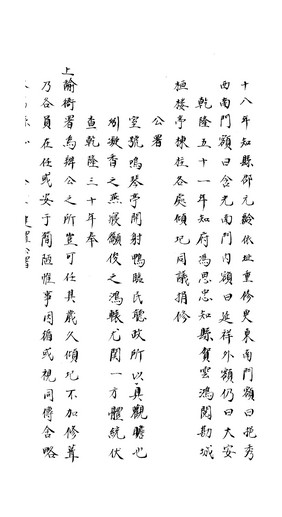 十八年知縣邵元齡依址重修更東南門額曰挹秀
西南門額曰含元南門內額曰延祥外額仍曰大安
乾隆五十一年知府馮思忠知縣賀雲鴻閱勘城
垣樓亭棟柱各處傾圮同議捐修
公署
室號鳴琴亭開射鴨臨民聽政所以具觀瞻也
況凝香之燕寢顧俊之鴻軼尤関一方體統伏
查乾隆三十年奉
上諭衙署為辦公之所豈可任其歲久傾圮不加修葺
乃各員在任或安于简陋惟事因循或視同傳舍略